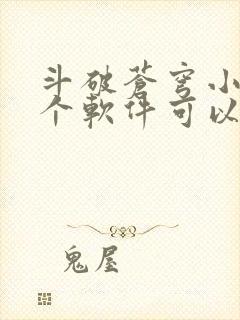 斗破蒼穹小
个軟件可以
鬼屋